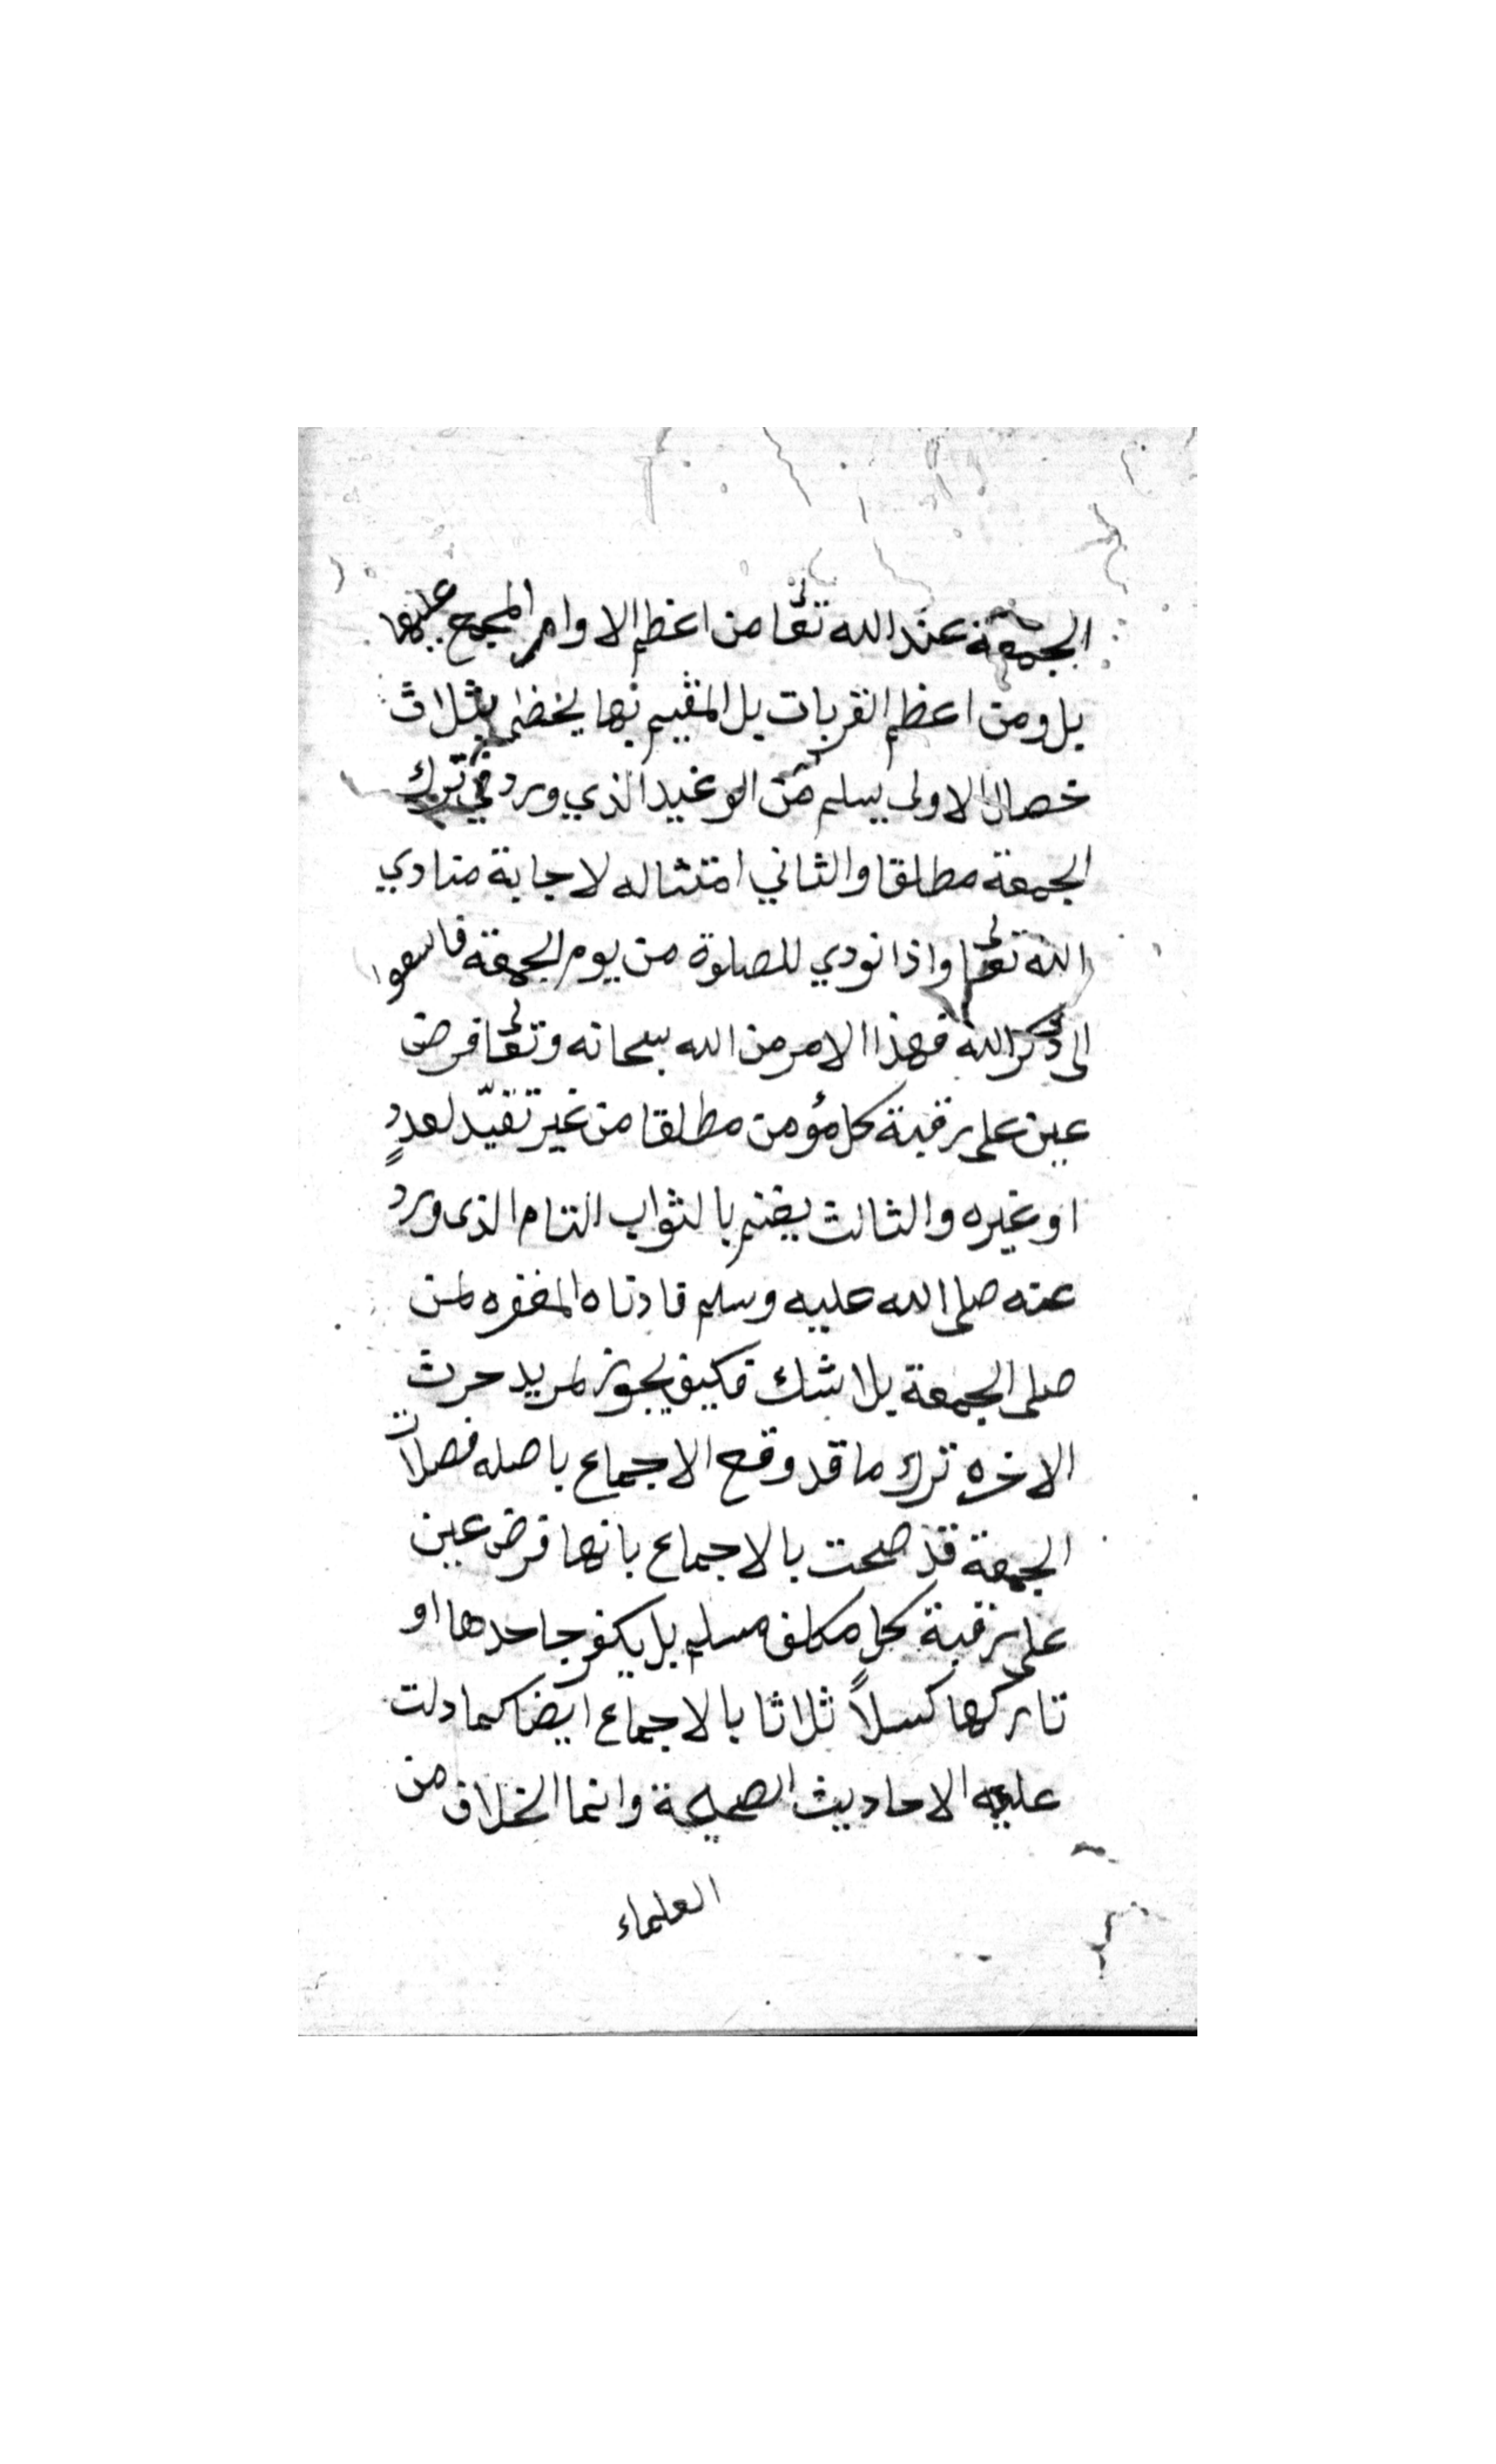 الجمعة عند الله تعالى من اعظم الاوامر المجمع عليها
بل ومن اعظم القربات بل المقيم بها يخطى بثلاث
خصال الاولى يسلم من الوعيد الذي ورد في ترك
الجمعة مطلقا والثاني امتثاله لاجابة منادي
الله تعالى واذا نودي للصلوة من يوم الجمعة فاسعوا
الى ذكر الله فهذا الامر من الله سبحانه وتعالى فرض
عين على رقبة كل مؤمن مطلقا من غير تقيّد لعددٍ
او غيره والثالث يغنم بالثواب التام الذى ورد
عنه صلى الله عليه وسلم فادناه المغفره لمن
صلى الجمعة بلا شك فكيف يجوز لمريد حرث
الاخره ترك ما قد وقع الاجماع باصله فصلات
الجمعة قد صحت بالاجماع بانها فرض عين
على رقبة كل مكلف مسلم بل يكفر جاحدها او
تاركها كسلاً ثلاثا بالاجماع ايضا كما دلت
عليه الاحاديث الصحيحة وانما الخلاف من
العلماء